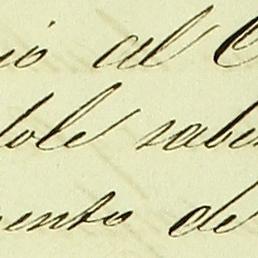 ió al C
dole saber
mento de